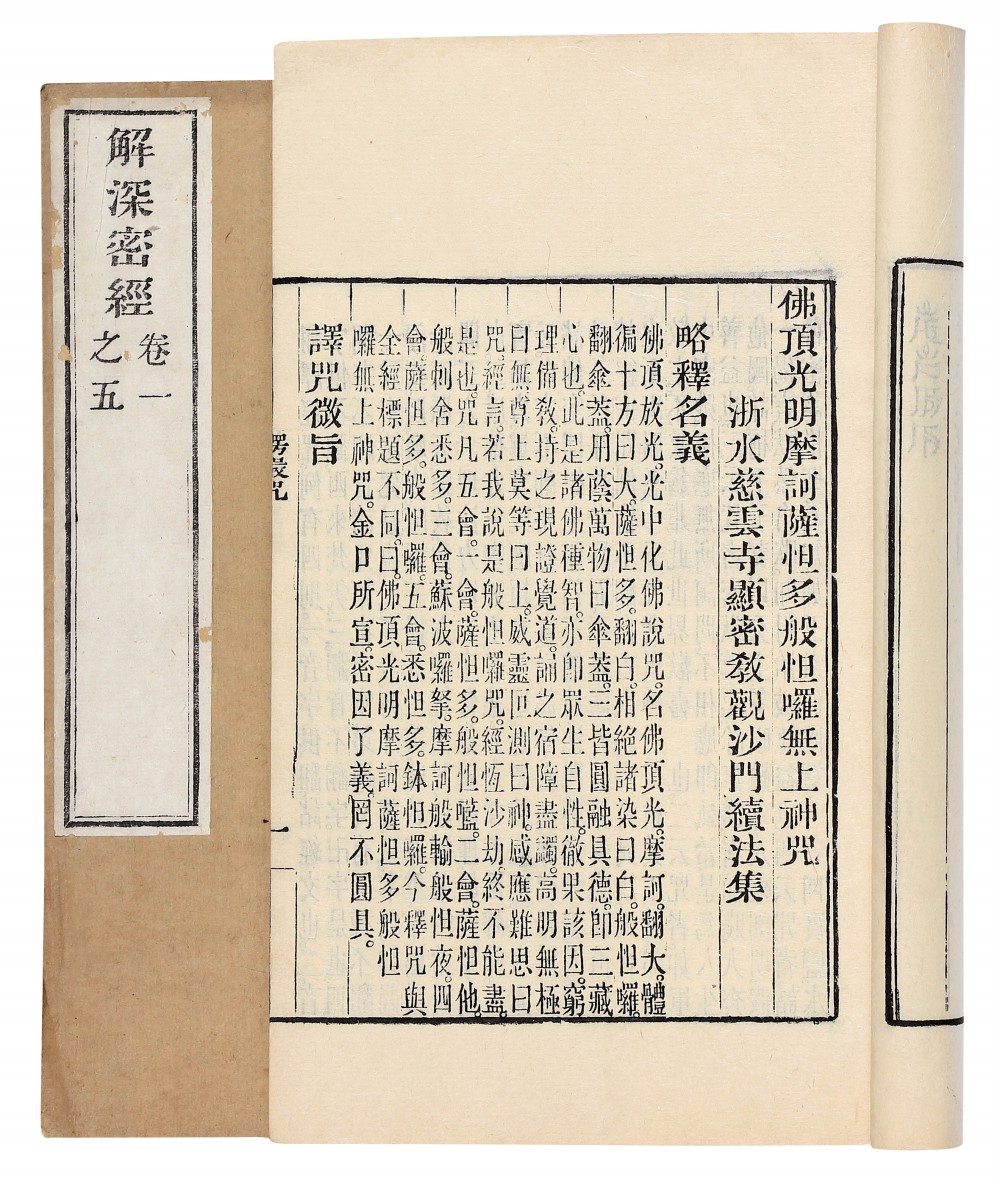 佛頂光明摩訶薩怛多般怛囉無上神咒
浙水慈雲寺顯密教觀沙門續法集
略釋名義
佛頂放光。光中化佛說咒。名佛頂光。摩訶。翻大。體
徧十方曰大。薩怛多。翻白。相絕諸染曰白。般怛囉。
翻傘蓋。用蔭萬物曰傘蓋。三皆圓融具德。卽三藏
心也。此是諸佛種智。亦卽眾生自性。徹果該因。窮
理備教。持之現證覺道。誦之宿障盡蠲。高明無極
曰無。尊上莫等曰上。威靈叵測曰神。感應難思曰
咒。經言。若我說是般怛囉咒。經恆沙劫。終不能盡。
是也。咒凡五會。一會。薩怛多。般怛㘕。二會。薩怛他。
般刺舍悉多。三會。蘇波囉拏。摩訶般輸般怛夜。四
會薩怛多。般怛囉。五會。悉怛多。鉢怛囉。今釋咒與
全經標題不同。曰佛頂光明摩訶薩怛多般怛
囉無上神咒。金口所宣。密因了義。罔不圓具。
譯咒微旨
楞嚴咒
一
解深密經
卷一
之五